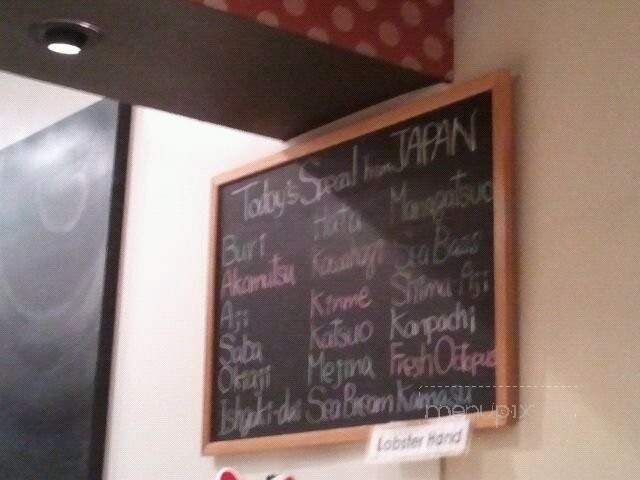 Today's Special from JAPAN
Buri Hata Managatsuo
Akamutsu Kawahagi Sea Bass
Aji Kinme Shima Aji
Saba Katsuo Kanpachi
Mejina Fresh Octopus
Sea Bream Kamasu
Lobster Hand
menupix